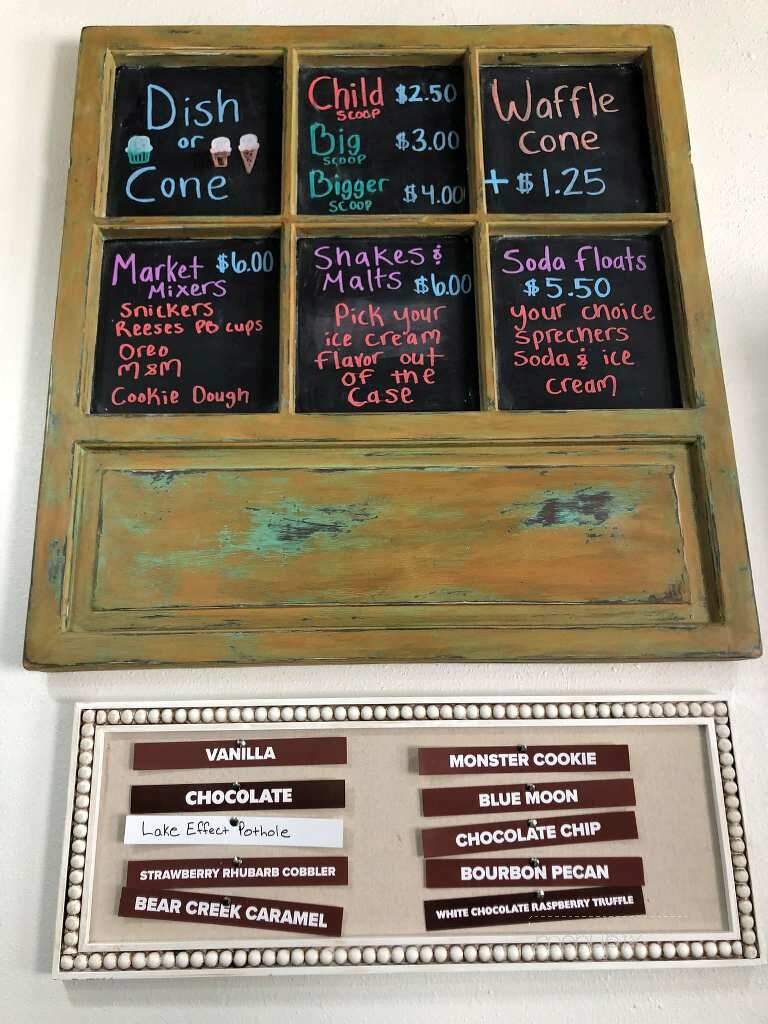 Dish
or
Cone
Child $2.50
SCOOP
Big $3.00
SCOOP
Bigger $4.00
SCOOP
Waffle
cone
+ $1.25
Market $6.00
Mixers
Snickers
Reeses PB cups
Oreo
M&M
Cookie Dough
Shakes &
Malts $6.00
Pick your
ice cream
flavor out
of the
Case
Soda floats
$5.50
your choice
sprechers
Soda & ice
cream
VANILLA
CHOCOLATE
Lake Effect Pothole
STRAWBERRY RHUBARB COBBLER
BEAR CREEK CARAMEL
MONSTER COOKIE
BLUE MOON
CHOCOLATE CHIP
BOURBON PECAN
WHITE CHOCOLATE RASPBERRY TRUFFLE